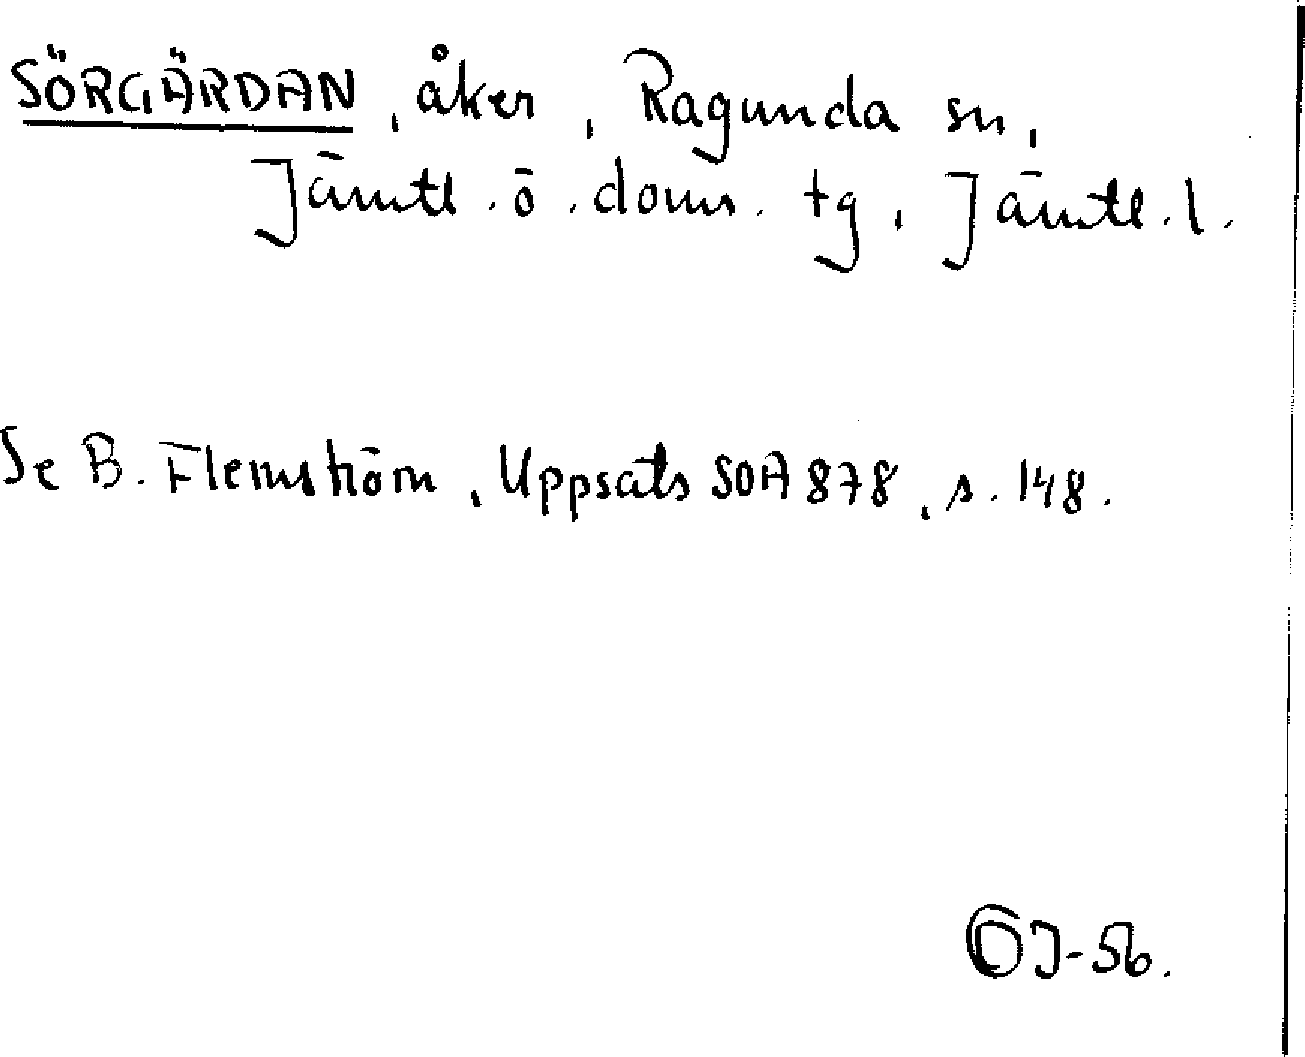 SÖRGÄRDAN, åker, Ragunda sn,
Jämtl. ö. doms. tg, Jämtl. l.
Se B. Flemström, Uppsats SOA 878, s. 148.
OJ-56.